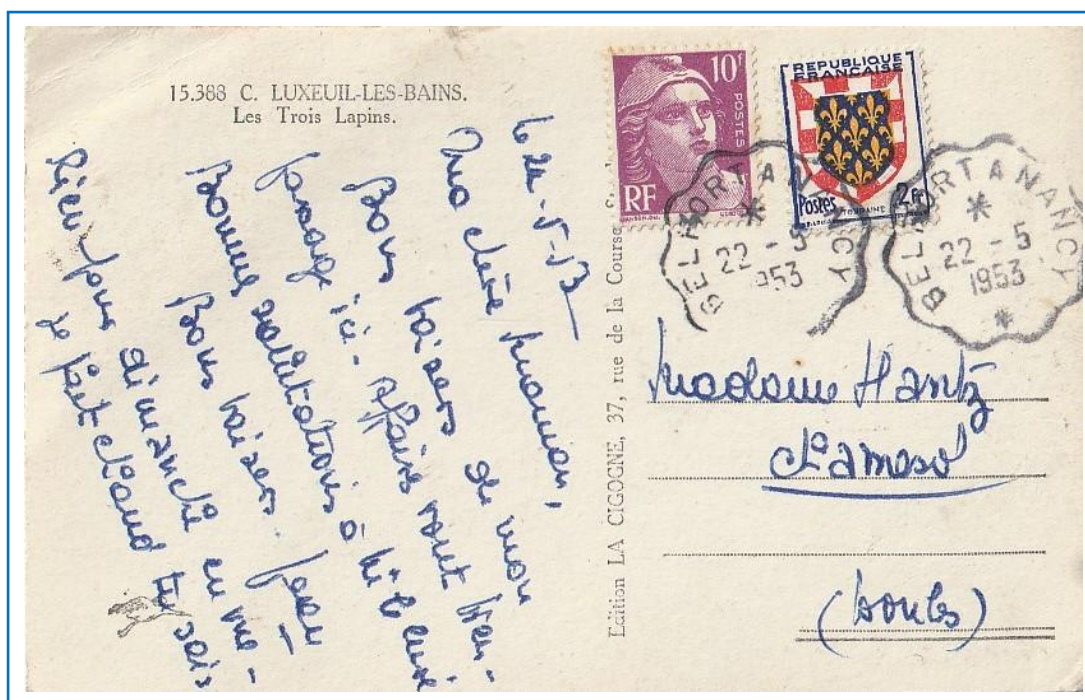 15.388 C. LUXEUIL-LES-BAINS.
Les Trois Lapins.
Ma chère maman,
Bons baisers de mon
passage ici. affaires vont bien.
Bonnes salutations à Mr le curé
Bons baisers. Jean
Rien pour dimanche en me-
fait chaud tu sais
Edition LA CIGOGNE, 37, rue de la Course
10f
POSTES
RF
REPUBLIQUE
FRANÇAISE
Postes 2Fr
TOURAINE
BELFORT A NANCY
22 - 5
1953
BELFORT A NANCY
22 - 5
1953
Madame Hantz
Chamesol
(Doubs)